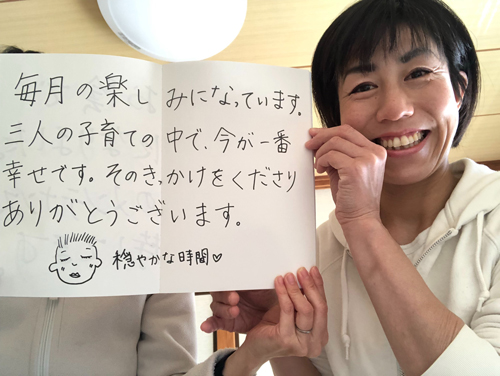 毎月の楽しみになっています。
三人の子育ての中で、今が一番
幸せです。そのきっかけをくださり
ありがとうございます。
穏やかな時間♡